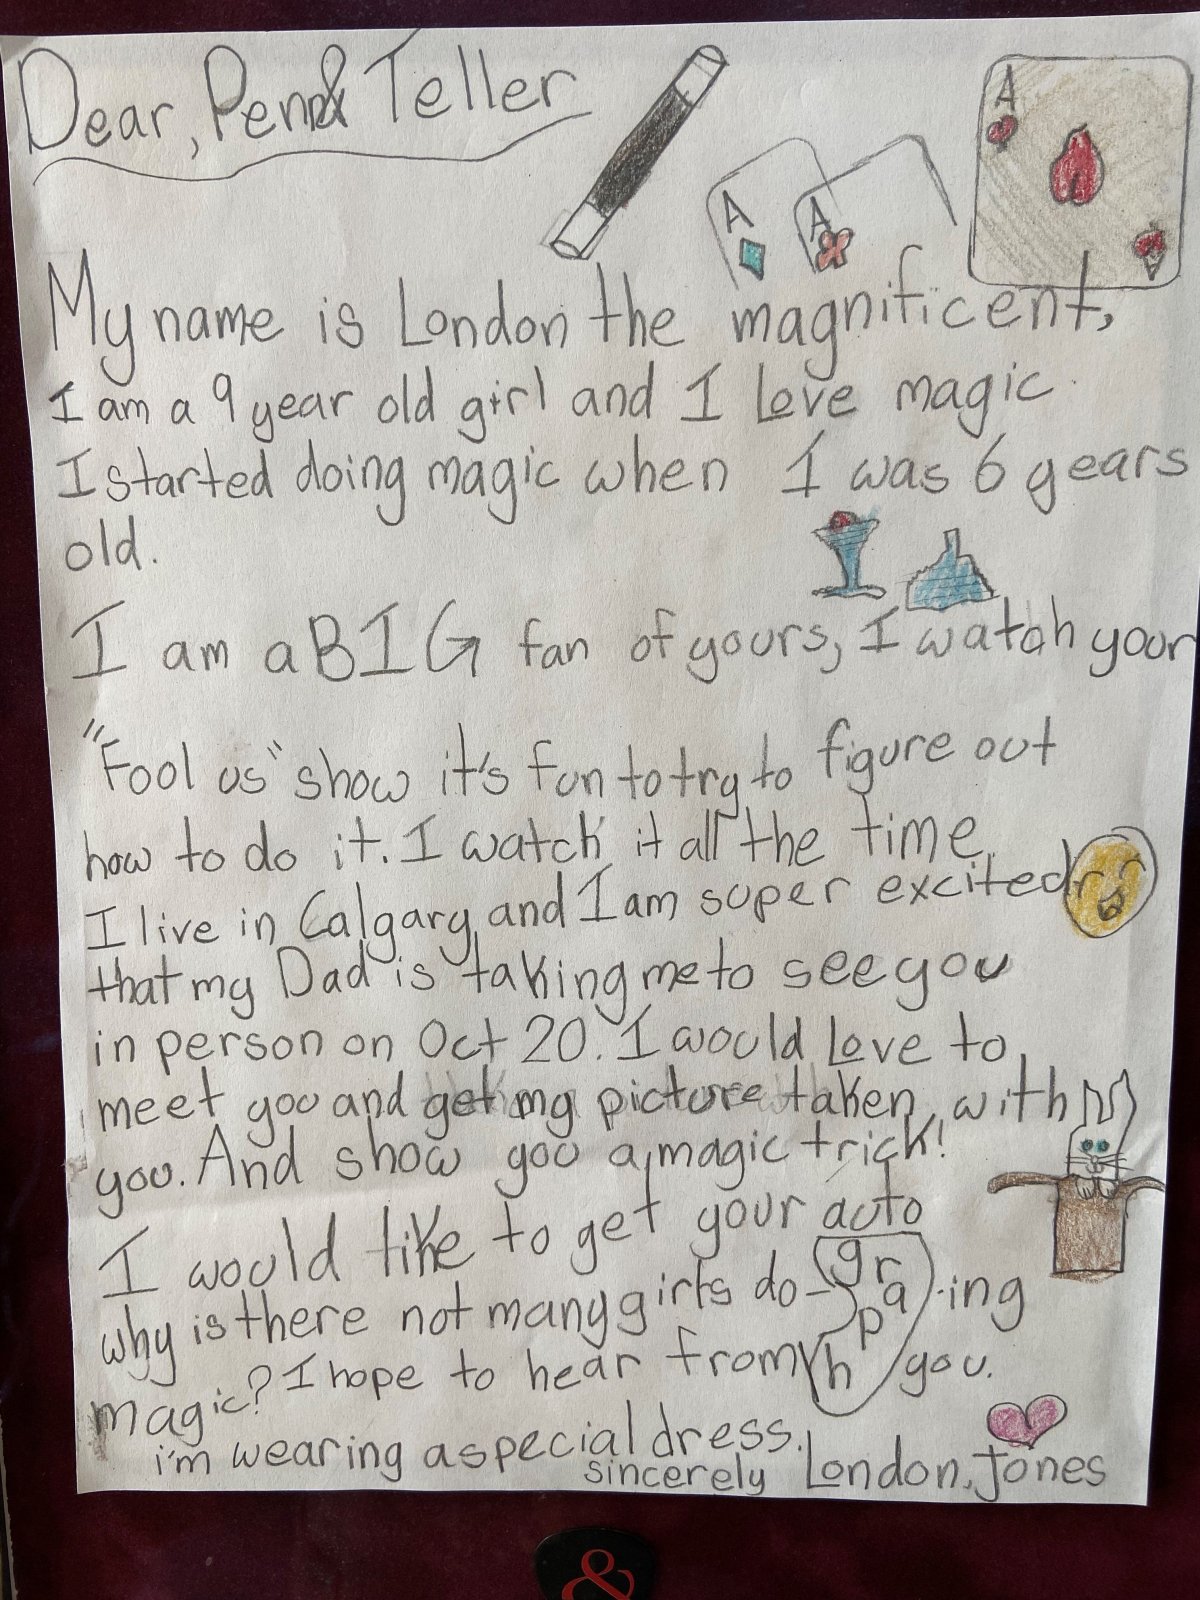 Dear, Penn & Teller
A
A
A
A
My name is London the magnificent,
I am a 9 year old girl and I Love magic
I started doing magic when I was 6 years
old.
I am a BIG fan of yours, I watch your
"Fool us" show it's fun to try to figure out
how to do it. I watch it all the time
I live in Calgary and I am super excited
that my Dad is taking me to see you
in person on Oct 20. I would Love to
meet you and get my picture taken with
you. And show you a magic trick!
I would like to get your auto
graph
why is there not many girls do-ing
magic? I hope to hear from you.
i'm wearing a special dress.
sincerely London Jones
&